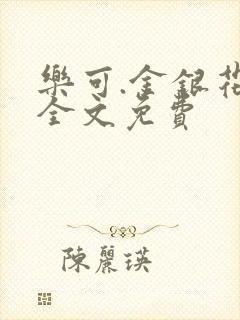 樂可.金銀花
全文免費
陳麗瑛